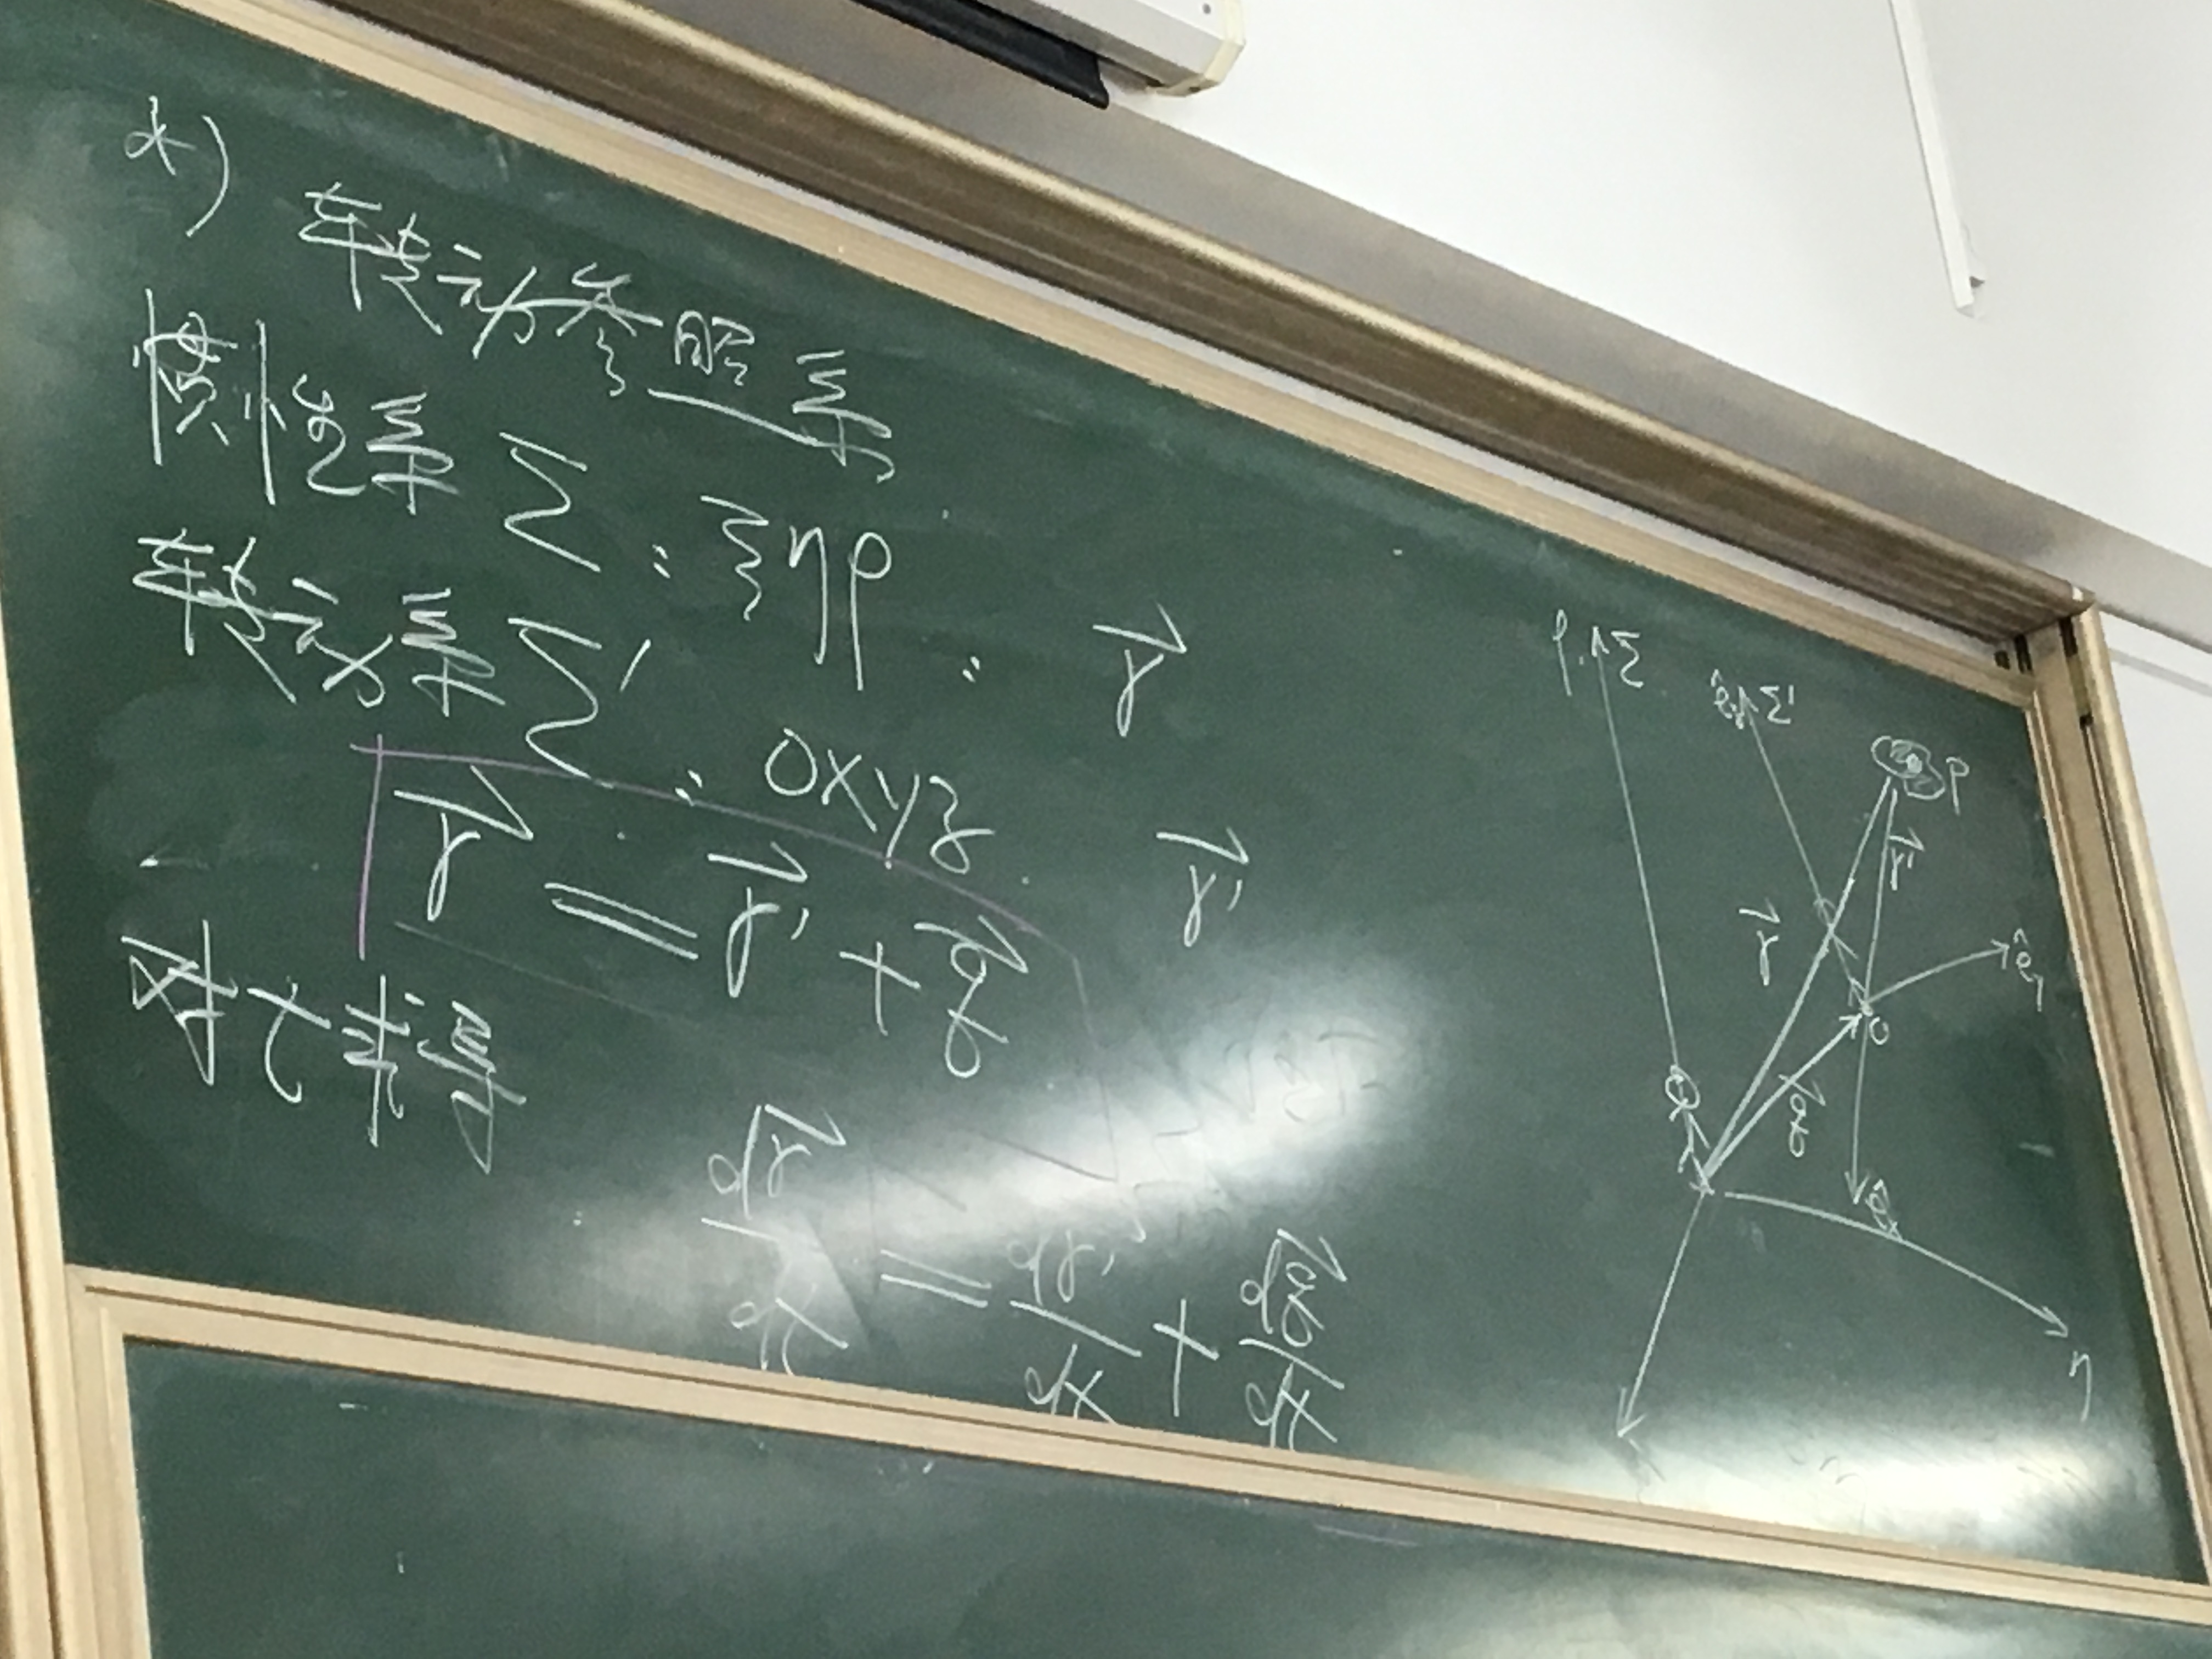 α) 转动参照系
惯性系 Σ : ξηρ : r⃗
转动系 Σ' : Oxyz r⃗'
r⃗ = r⃗' + r⃗₀
对t求导
dr⃗/dt = dr⃗'/dt + dr⃗₀/dt
ρ Σ
Σ'
P
r⃗'
r⃗
O
η